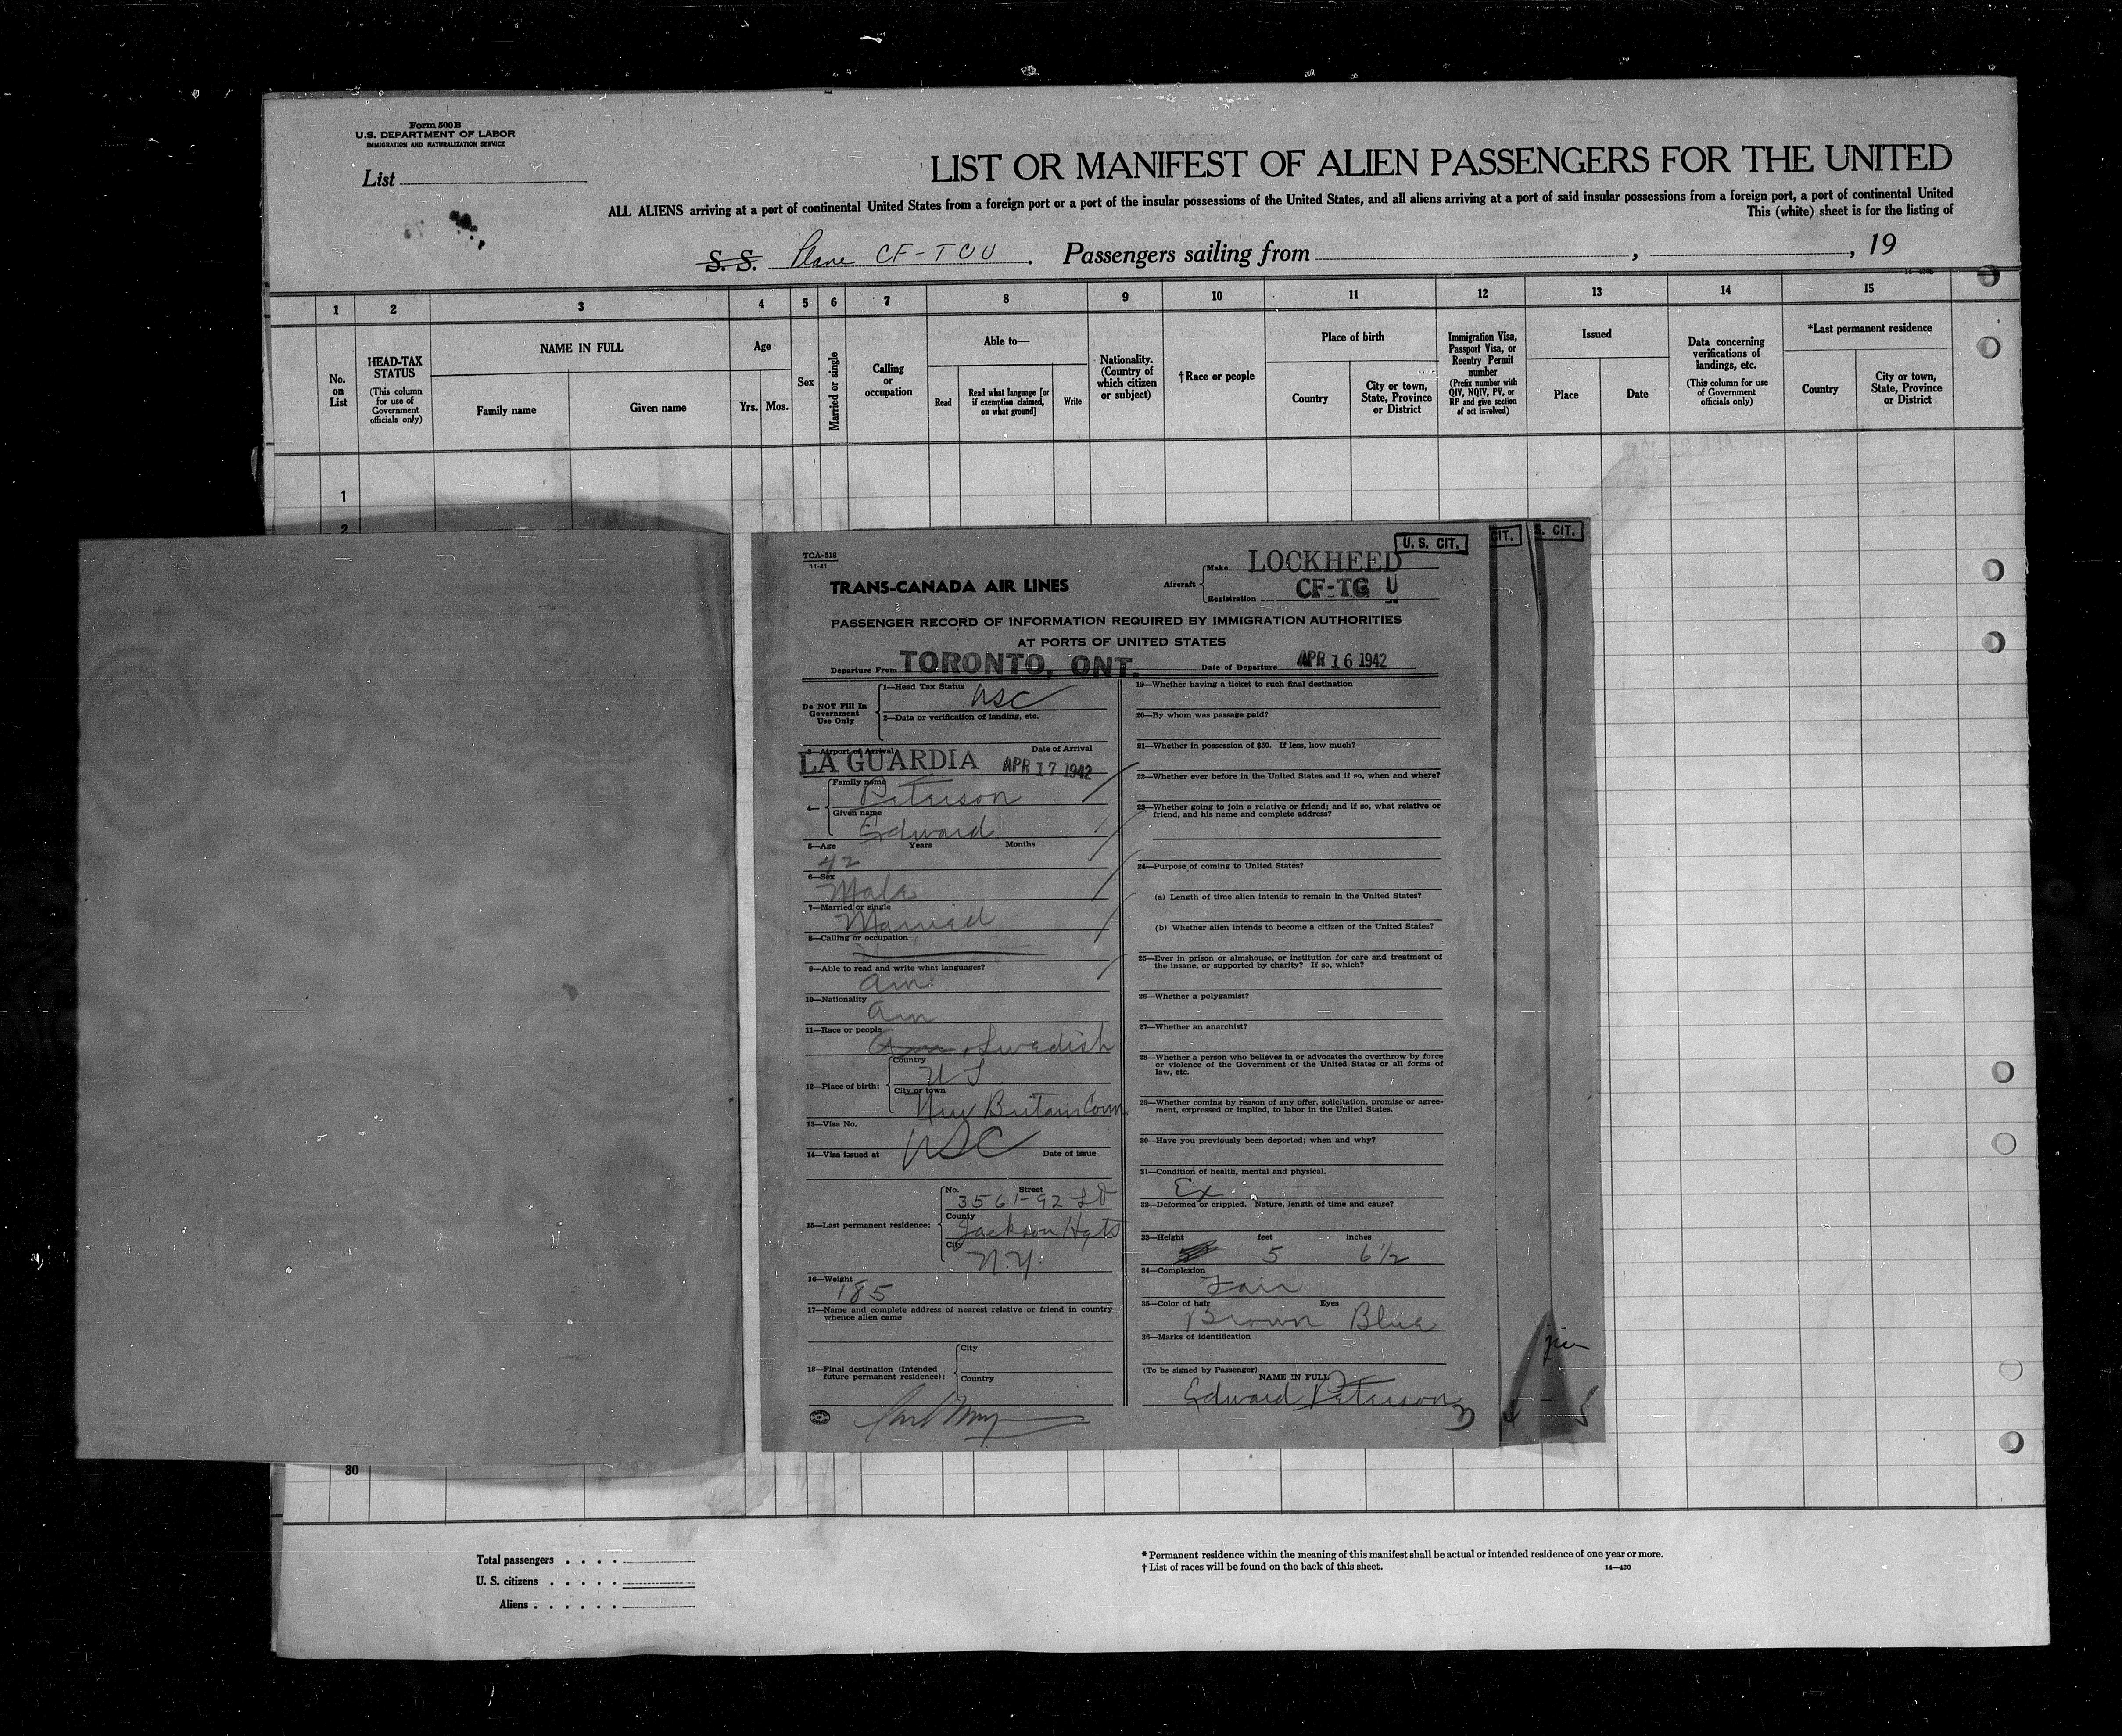 Form 500 B
U.S. DEPARTMENT OF LABOR
IMMIGRATION AND NATURALIZATION SERVICE
List
LIST OR MANIFEST OF ALIEN PASSENGERS FOR THE UNITED
ALL ALIENS arriving at a port of continental United States from a foreign port or a port of the insular possessions of the United States, and all aliens arriving at a port of said insular possessions from a foreign port, a port of continental United
This (white) sheet is for the listing of
S. S. Plane CF-TCU. Passengers sailing from , , 19
1 2 3 4 5 6 7 8 9 10 11 12 13 14 15
No. on List
HEAD-TAX STATUS
(This column for use of Government officials only)
NAME IN FULL
Family name Given name
Age
Yrs. Mos.
Sex
Married or single
Calling or occupation
Able to—
Read
Read what language [or if exemption claimed, on what ground]
Write
Nationality. (Country of which citizen or subject)
†Race or people
Place of birth
Country
City or town, State, Province or District
Immigration Visa, Passport Visa, or Reentry Permit number
(Prefix number with QIV, NQIV, PV, or RP and give section of act involved)
Issued
Place Date
Data concerning verifications of landings, etc.
(This column for use of Government officials only)
*Last permanent residence
Country
City or town, State, Province or District
1
2
TCA-518
11-41
TRANS-CANADA AIR LINES
U. S. CIT.
CIT.
S. CIT.
Aircraft
Make LOCKHEED
Registration CF-TG U
PASSENGER RECORD OF INFORMATION REQUIRED BY IMMIGRATION AUTHORITIES
AT PORTS OF UNITED STATES
Departure From TORONTO, ONT. Date of Departure APR 16 1942
Do NOT Fill In Government Use Only
1—Head Tax Status USC
2—Data or verification of landing, etc.
3—Airport of Arrival Date of Arrival
LA GUARDIA APR 17 1942
4—
Family name
Peterson
Given name
Edward
5—Age Years Months
42
6—Sex
Male
7—Married or single
Married
8—Calling or occupation
9—Able to read and write what languages?
Am.
10—Nationality
Am
11—Race or people
Am. Swedish
12—Place of birth:
Country
U S
City or town
New Britain Conn.
13—Visa No.
USC
14—Visa issued at Date of issue
15—Last permanent residence:
No. Street
3561-92 St
County
Jackson Hgts
City
N.Y.
16—Weight
185
17—Name and complete address of nearest relative or friend in country whence alien came
18—Final destination (Intended future permanent residence):
City
Country
19—Whether having a ticket to such final destination
20—By whom was passage paid?
21—Whether in possession of $50. If less, how much?
22—Whether ever before in the United States and if so, when and where?
23—Whether going to join a relative or friend; and if so, what relative or friend, and his name and complete address?
24—Purpose of coming to United States?
(a) Length of time alien intends to remain in the United States?
(b) Whether alien intends to become a citizen of the United States?
25—Ever in prison or almshouse, or institution for care and treatment of the insane, or supported by charity? If so, which?
26—Whether a polygamist?
27—Whether an anarchist?
28—Whether a person who believes in or advocates the overthrow by force or violence of the Government of the United States or all forms of law, etc.
29—Whether coming by reason of any offer, solicitation, promise or agreement, expressed or implied, to labor in the United States.
30—Have you previously been deported; when and why?
31—Condition of health, mental and physical.
Ex
32—Deformed or crippled. Nature, length of time and cause?
33—Height feet inches
5 6 1/2
34—Complexion
Fair
35—Color of hair Eyes
Brown Blue
36—Marks of identification
(To be signed by Passenger)
NAME IN FULL
Edward Peterson
30
Total passengers
U. S. citizens
Aliens
* Permanent residence within the meaning of this manifest shall be actual or intended residence of one year or more.
† List of races will be found on the back of this sheet.
14—430